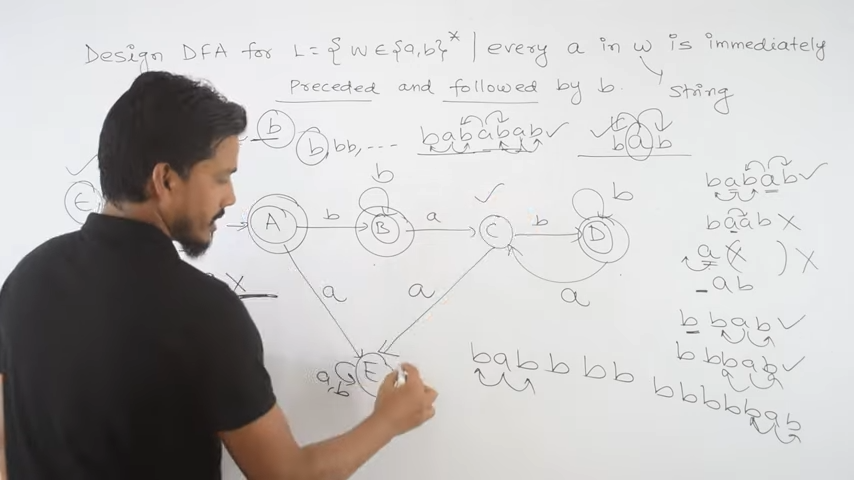 Design DFA for L = { W ∈ {a,b}* | every a in w is immediately
Preceded and followed by b.
String
b b, bb, ---- babababab ✓ ✓ bab
ε,
babab ✓
baab X
a ( ) X
_ab
bbab ✓
bbbab ✓
bbbbbab
A b B a C b D
b b
a a a
E a,b
X
babbbb